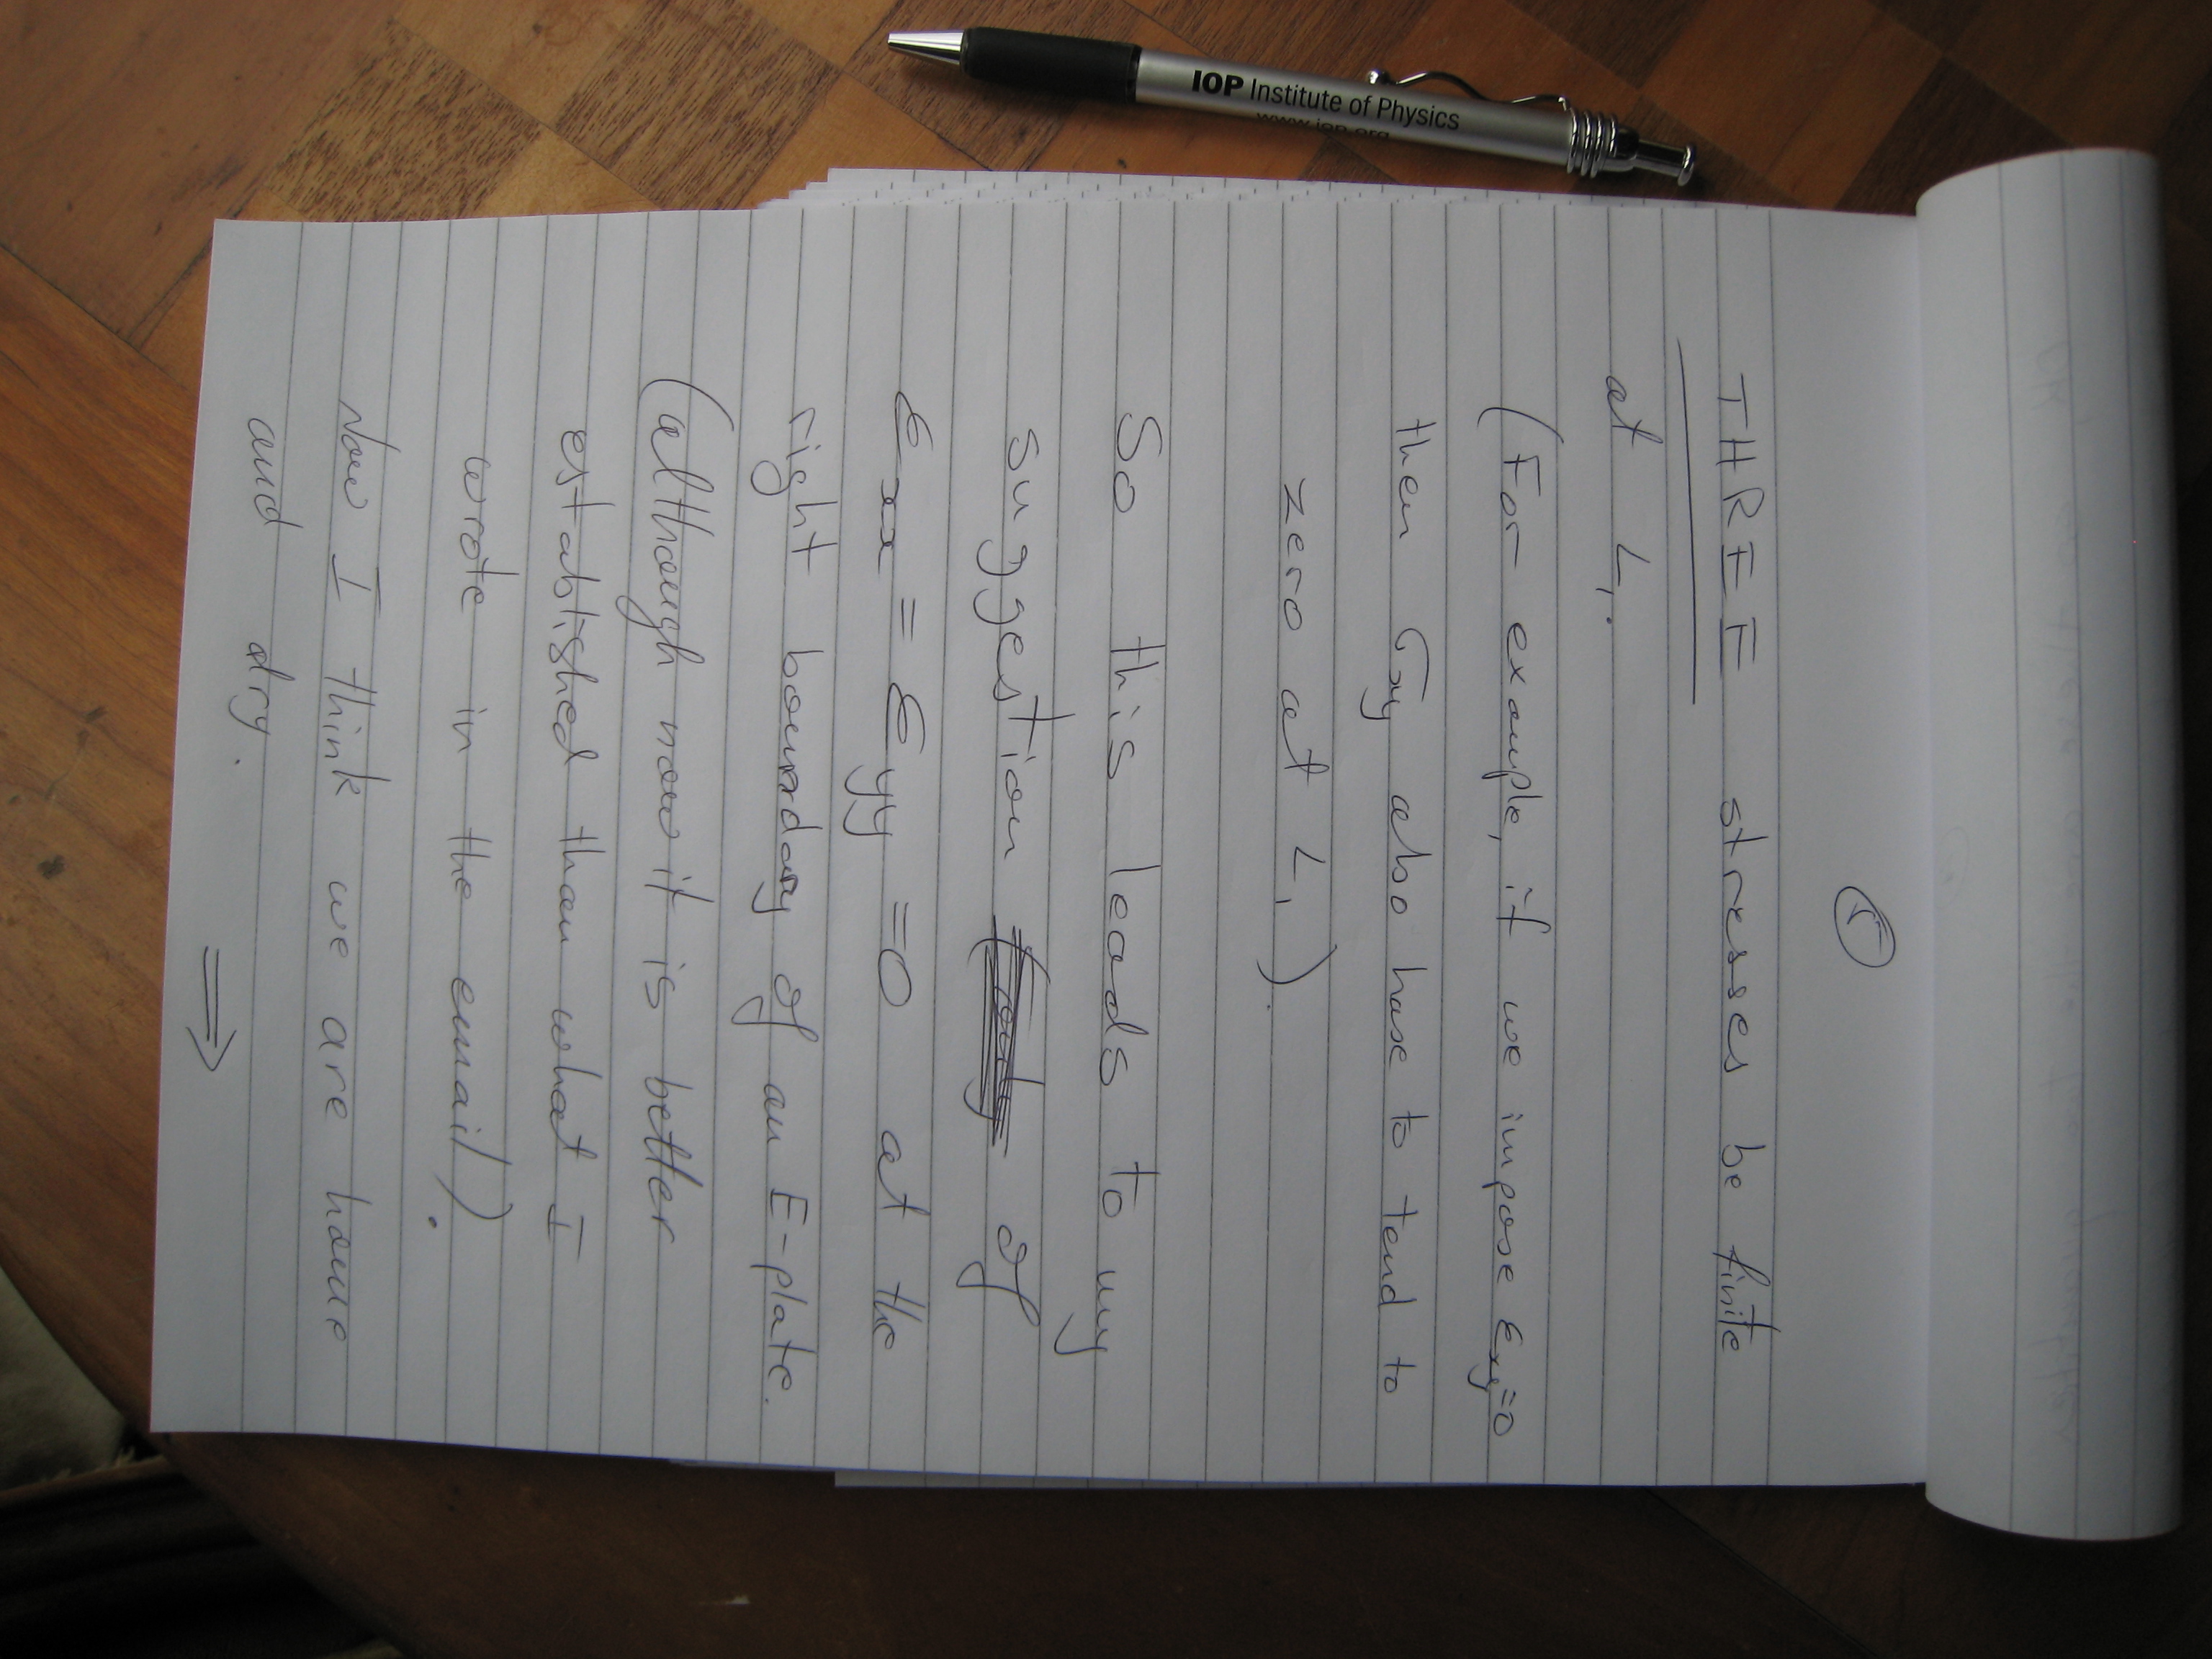 IOP Institute of Physics
www.iop.org
5
THREE stresses be finite
at L₁.
(For example, if we impose εxy=0
then σxy also have to tend to
zero at L₁).
So this leads to my
suggestion of
εxx = εyy =0 at the
right boundary of an E-plate.
(although now it is better
established than what I
wrote in the email).
Now I think we are home
and dry.
⇒